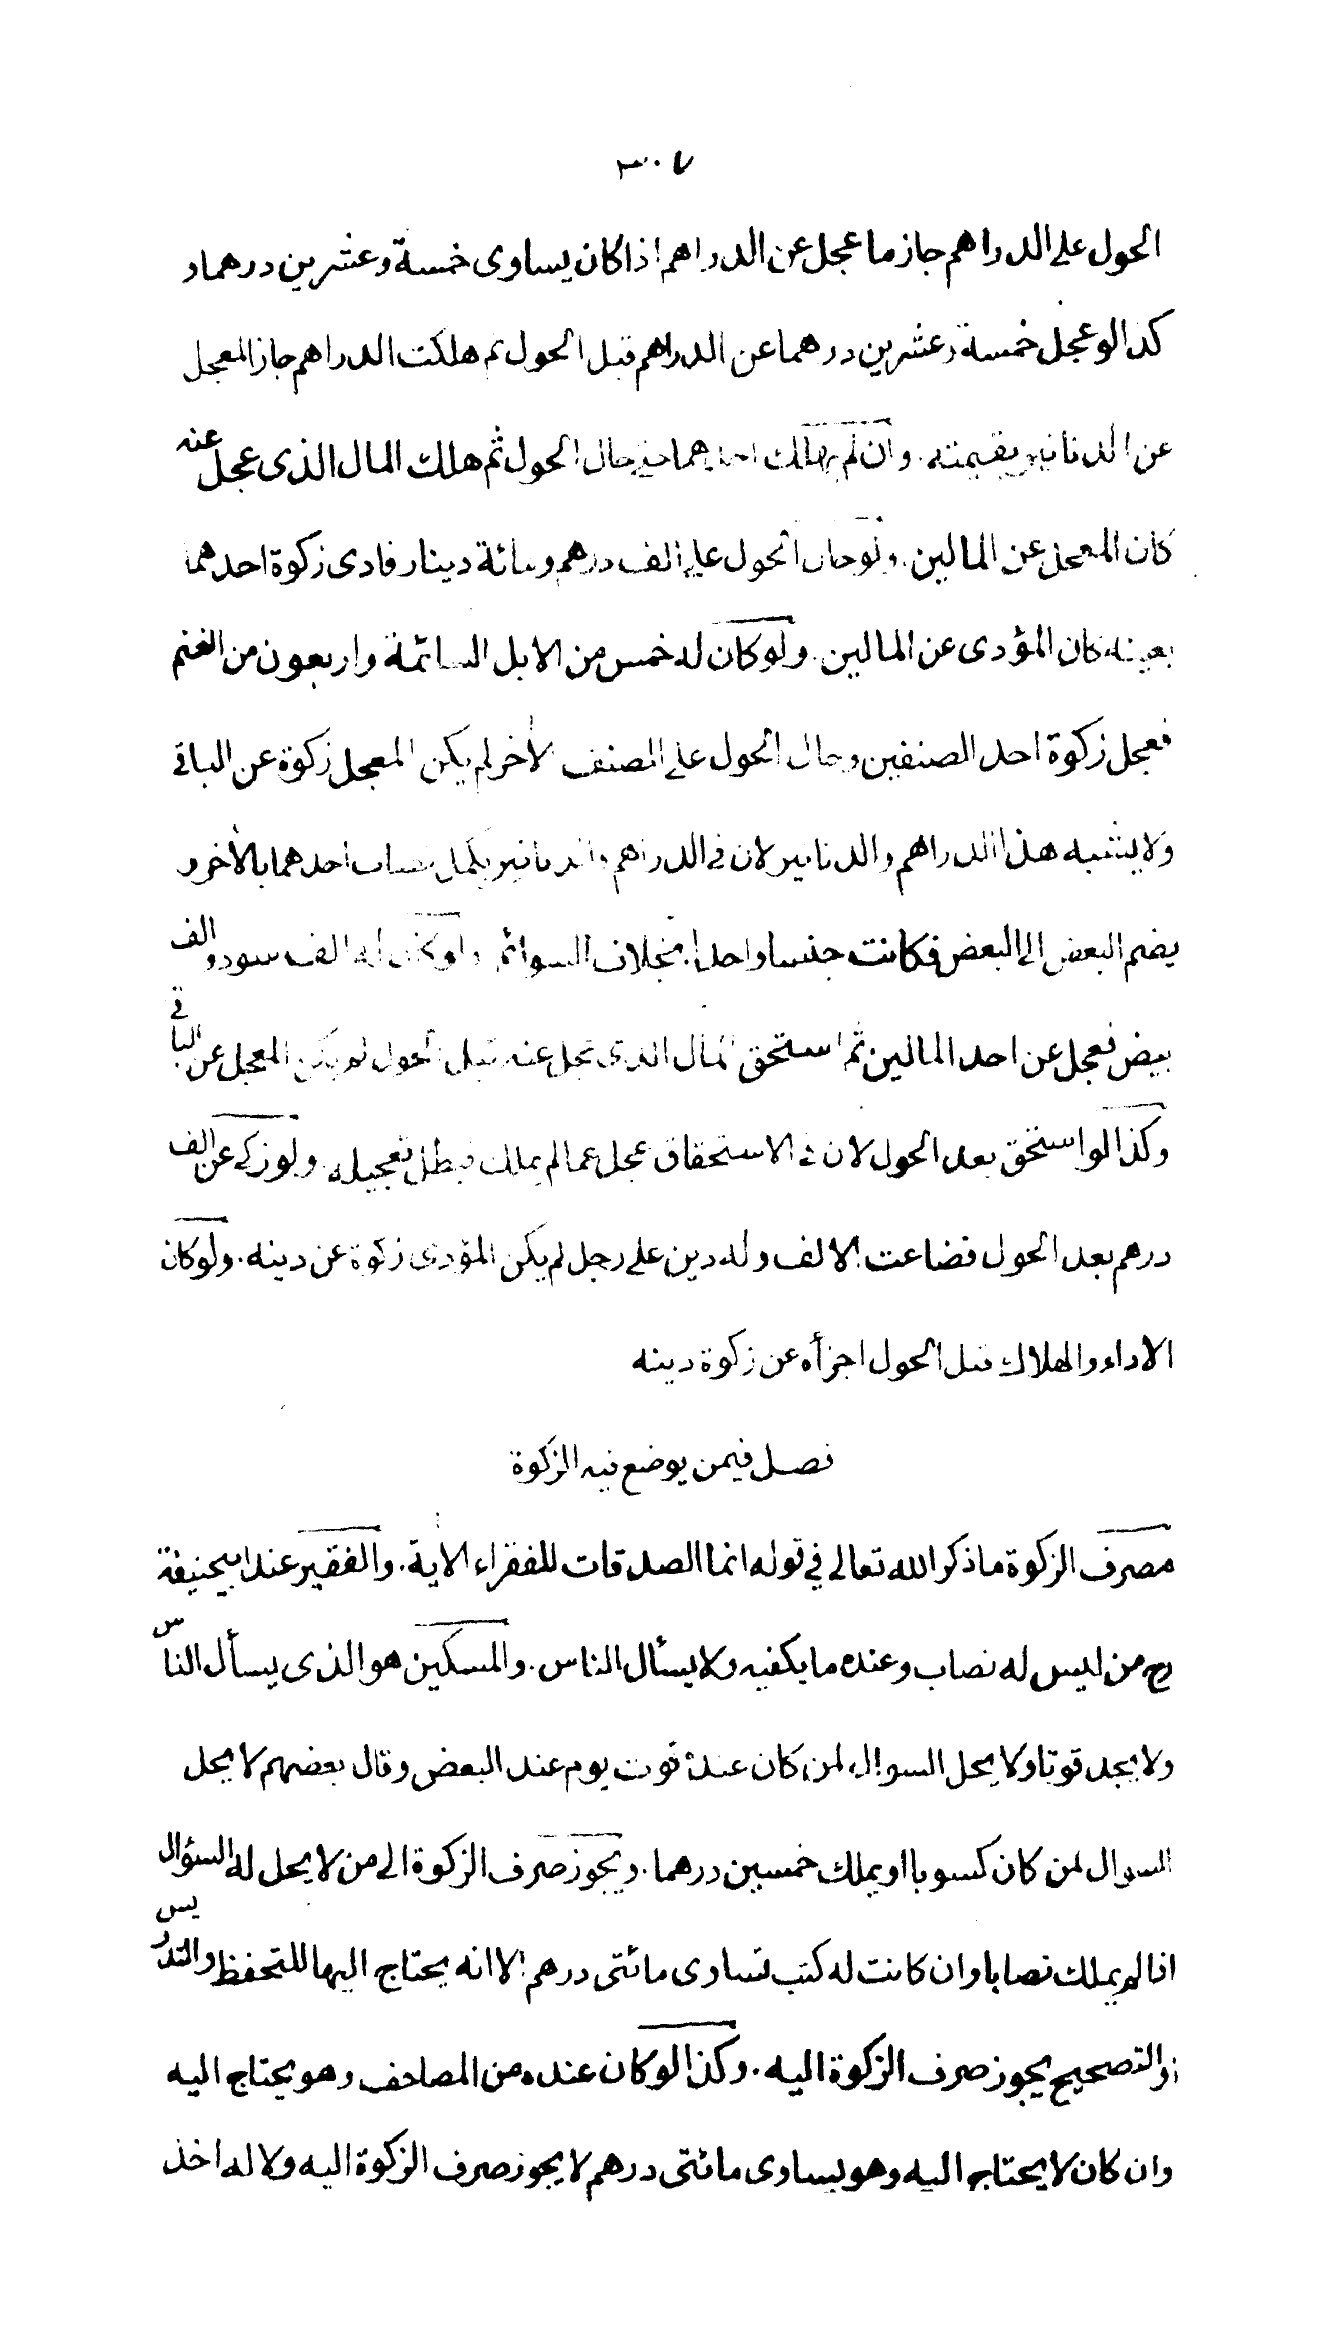 ٣٠٧
الحول على الدراهم جاز ما عجل عن الدراهم اذا كان يساوى خمسة وعشرين درهما و
كذا لو عجل خمسة وعشرين درهما عن الدراهم قبل الحول ثم هلكت الدراهم جاز المعجل
عن الدنانير بقيمته . وان لم يهلك احدهما حتى حال الحول ثم هلك المال الذى عجل عنه
كان المعجل عن المالين . ولو حال الحول على الف درهم ومائة دينار فادى زكوة احدهما
بعينه كان المؤدى عن المالين . ولو كان له خمس من الابل السائمة واربعون من الغنم
فعجل زكوة احد الصنفين وحال الحول على الصنف الأخر لم يكن المعجل زكوة عن الباقى
ولا يشبه هذا الدراهم والدنانير لان فى الدراهم والدنانير يكمل نصاب احدهما بالأخر و
يضم البعض الى البعض فكانت جنسا واحدا بخلاف السوائم ولو كان له الف سود والف
بيض فعجل عن احد المالين ثم استحق المال الذى عجل عنه قبل الحول لم يكن المعجل عن الباقى
وكذا لو استحق بعد الحول لان فى الاستحقاق عجل عما لم يملك فبطل تعجيله . ولو زكى عن الف
درهم بعد الحول فضاعت الالف وله دين على رجل لم يكن المؤدى زكوة عن دينه . ولو كان
الاداء والهلاك قبل الحول اجزأه عن زكوة دينه
فصل فيمن يوضع فيه الزكوة
مصرف الزكوة ما ذكر الله تعالى فى قوله انما الصدقات للفقراء الأية . والفقير عند ابيحنيفة
رح من ليس له نصاب وعنده ما يكفيه ولا يسئال الناس . والمسكين هو الذى يسأل الناس
ولا يجد قوتا ولا يحل السوال لمن كان عنده قوت يوم عند البعض وقال بعضهم لا يحل
السوال لمن كان كسوبا او يملك خمسين درهما . ويجوز صرف الزكوة الى من لا يحل له السؤال
اذا لم يملك نصابا وان كانت له كتب تساوى مائتى درهم الا انه يحتاج اليها للتحفظ والتدريس
او التصحيح يجوز صرف الزكوة اليه . وكذا لو كان عنده من المصاحف وهو يحتاج اليه
وان كان لا يحتاج اليه وهو يساوى مائتى درهم لا يجوز صرف الزكوة اليه ولا له اخذ